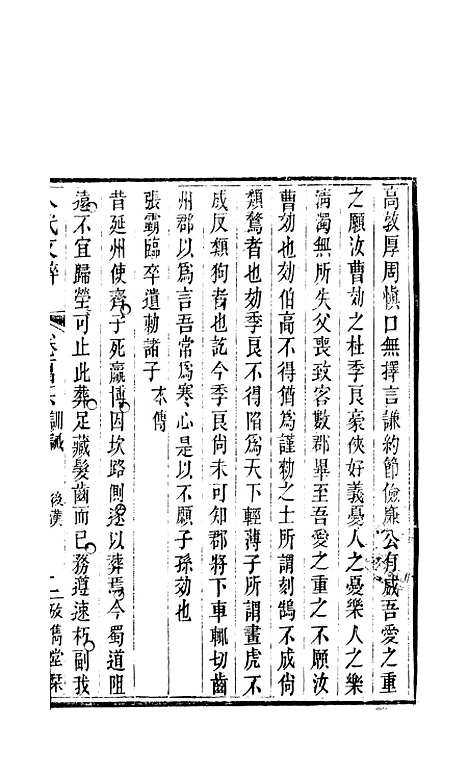 高敦厚周慎口無擇言謙約節儉廉公有威吾愛之重
之願汝曹効之杜季良豪俠好義憂人之憂樂人之樂
淸濁無所失父喪致客數郡畢至吾愛之重之不願汝
曹効也効伯高不得猶爲謹勑之士所謂刻鵠不成尙
類鶩者也効季良不得陷爲天下輕薄子所謂畫虎不
成反類狗者也訖今季良尙未可知郡將下車輒切齒
州郡以爲言吾常爲寒心是以不願子孫効也
張霸臨卒遺勑諸子 本傳
昔延州使齊子死嬴博因坎路側遂以葬焉今蜀道阻
遠不宜歸塋可止此葬足藏髮齒而已務遵速朽副我
氏文 訓誡 後漢 二 攷雋堂栞